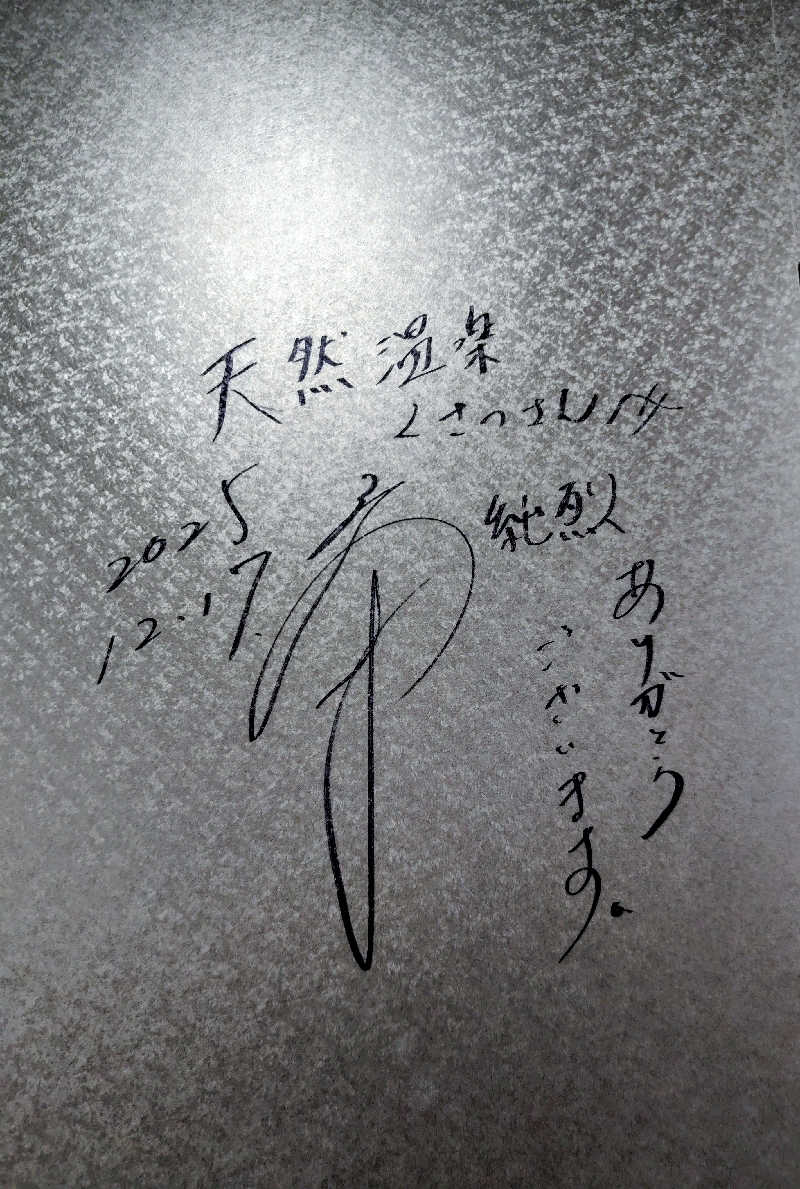 天然温泉
くさつさん
2025
12.17.
純烈
ありがとう
ございます。